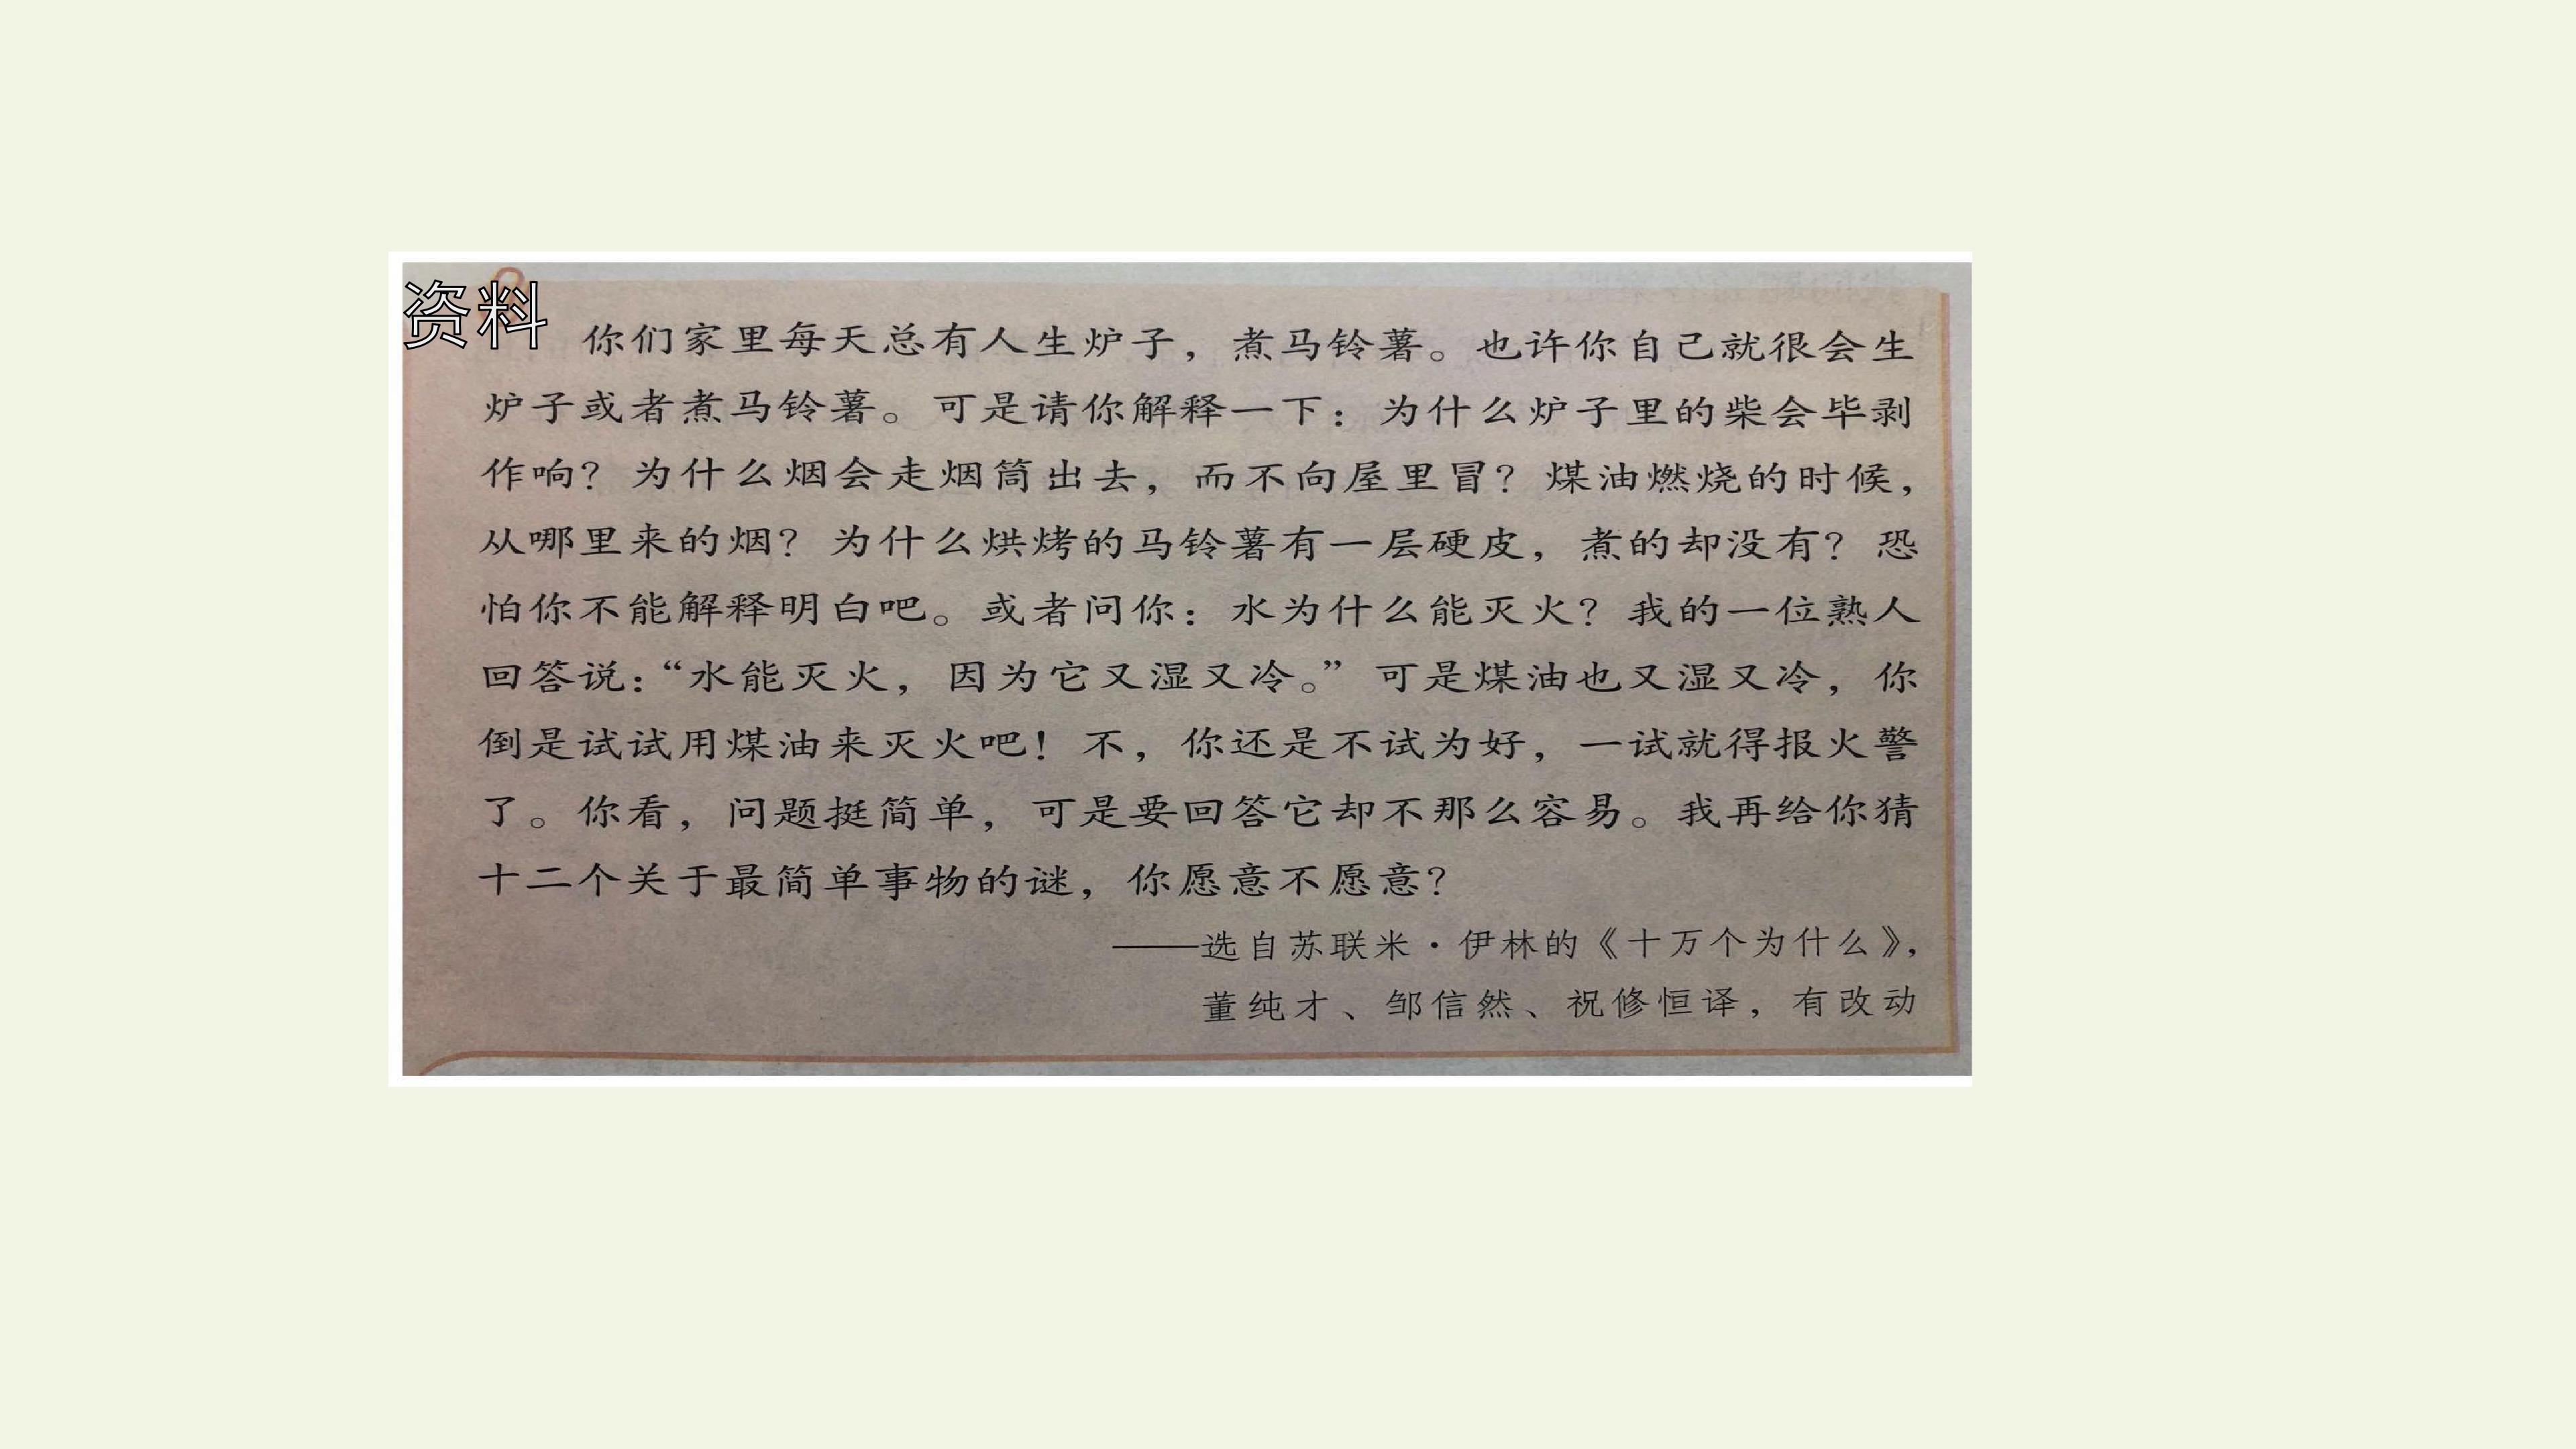 资料
你们家里每天总有人生炉子，煮马铃薯。也许你自己就很会生
炉子或者煮马铃薯。可是请你解释一下：为什么炉子里的柴会毕剥
作响？为什么烟会走烟筒出去，而不向屋里冒？煤油燃烧的时候，
从哪里来的烟？为什么烘烤的马铃薯有一层硬皮，煮的却没有？恐
怕你不能解释明白吧。或者问你：水为什么能灭火？我的一位熟人
回答说：“水能灭火，因为它又湿又冷。”可是煤油也又湿又冷，你
倒是试试用煤油来灭火吧！不，你还是不试为好，一试就得报火警
了。你看，问题挺简单，可是要回答它却不那么容易。我再给你猜
十二个关于最简单事物的谜，你愿意不愿意？
——选自苏联米·伊林的《十万个为什么》，
董纯才、邹信然、祝修恒译，有改动